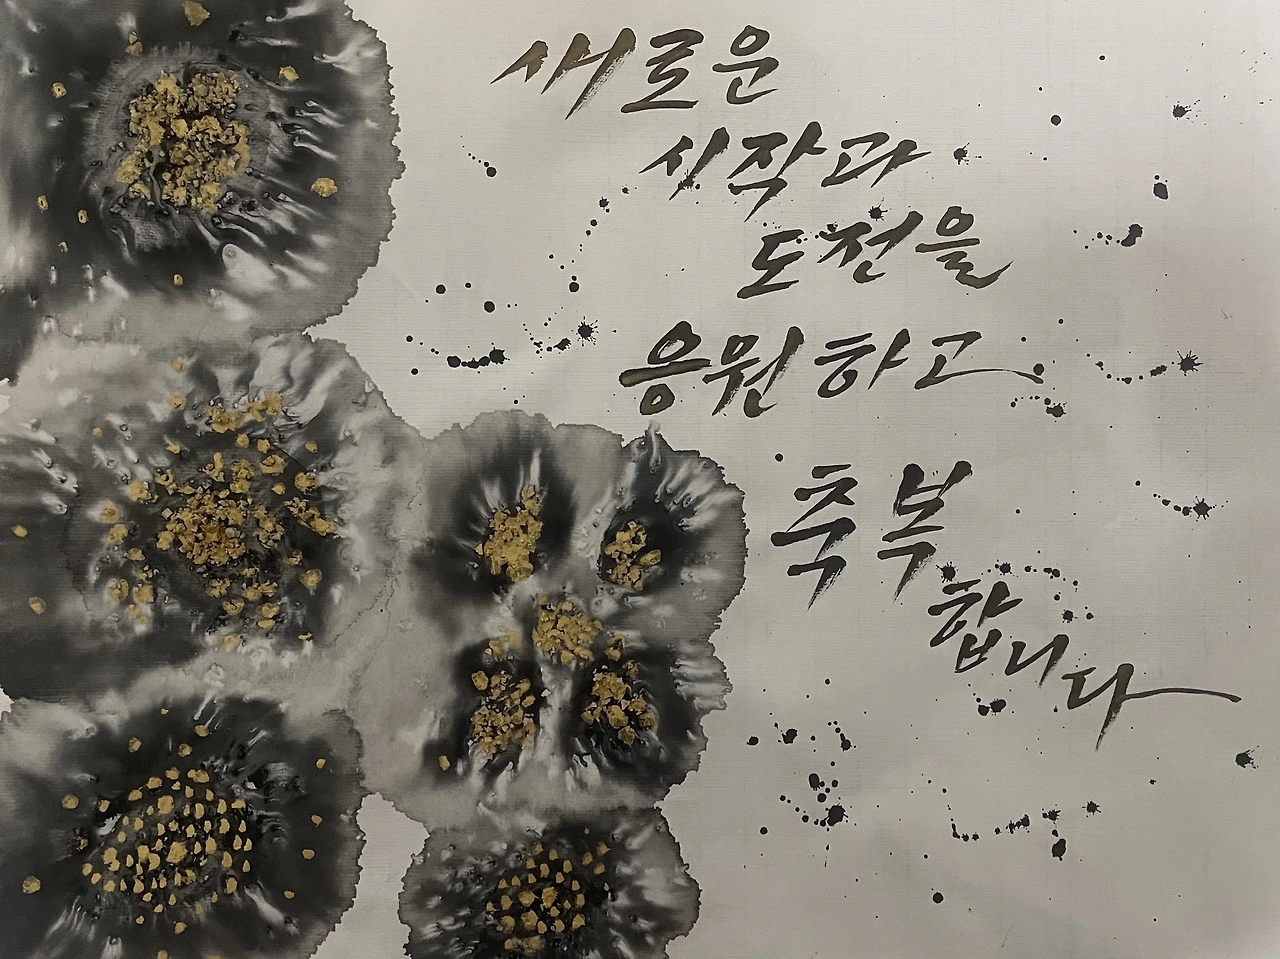 새로운
시작과
도전을
응원하고
축복
합니다